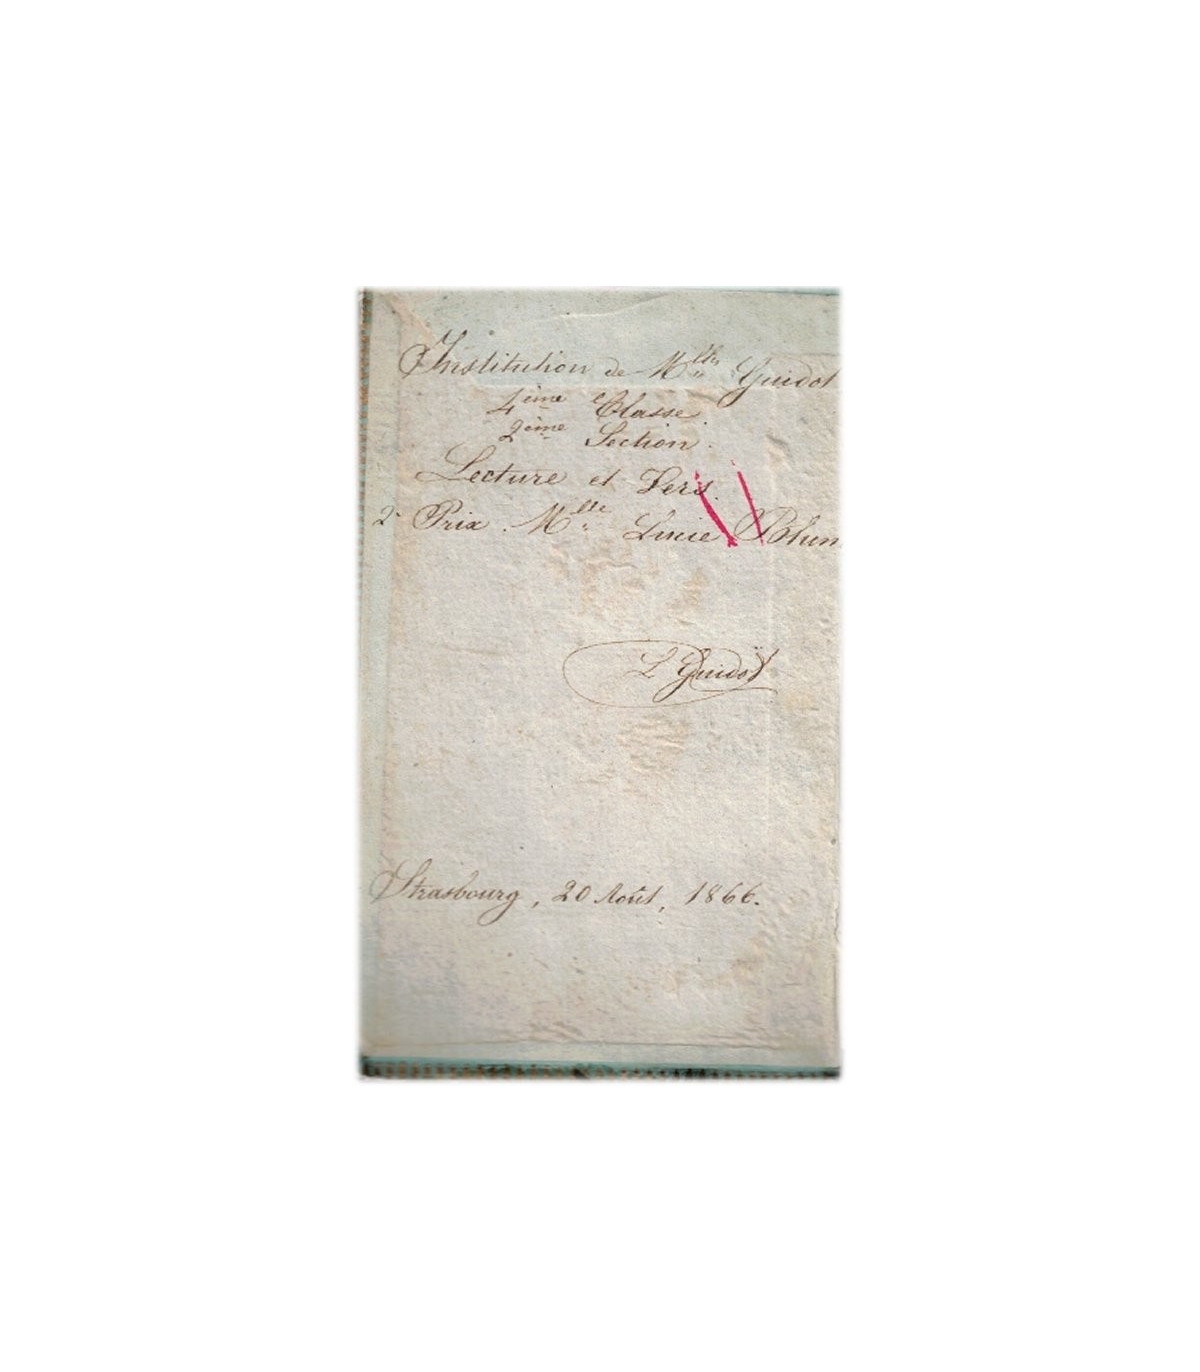 Institution de Mlle Guidot
4ème Classe.
2ème Section.
Lecture et Vers.
2e Prix. Mlle Lucie Blum
L Guidot
Strasbourg, 20 Août, 1866.